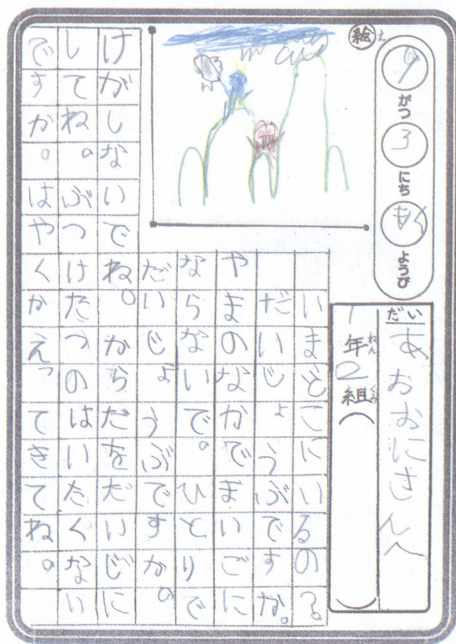 9がつ3にちもくようび
絵え
だい
あおおにさんへ
1年ねん2組くみ( )
いまどこにいるの?
だいじょうぶですか。
やまのなかでまいごに
ならないで。ひとりで
だいじょうぶですか。
けがしないでね。からだをだいじに
してね。ぶつけたつのはいたくない
ですか。はやくかえってきてね。